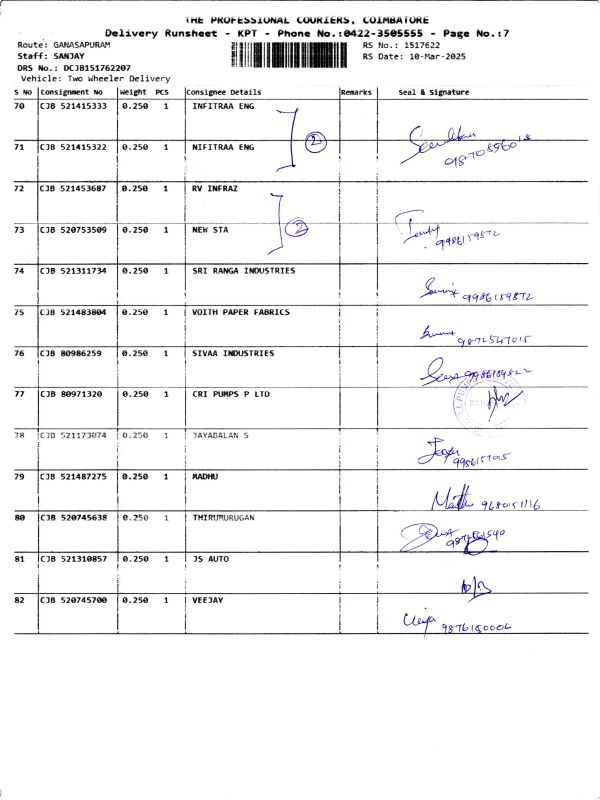 THE PROFESSIONAL COURIERS, COIMBATORE
Delivery Runsheet - KPT - Phone No.:0422-3505555 - Page No.:7
Route: GANASAPURAM RS No.: 1517622
Staff: SANJAY RS Date: 10-Mar-2025
DRS No.: DCJB151762207
Vehicle: Two Wheeler Delivery
S No Consignment No Weight PCS Consignee Details Remarks Seal & Signature
70 CJB 521415333 0.250 1 INFITRAA ENG
2
71 CJB 521415322 0.250 1 NIFITRAA ENG
72 CJB 521453687 0.250 1 RV INFRAZ
2
73 CJB 520753509 0.250 1 NEW STA
9986159872
74 CJB 521311734 0.250 1 SRI RANGA INDUSTRIES
9986159872
75 CJB 521483804 0.250 1 VOITH PAPER FABRICS
9872547015
76 CJB 80986259 0.250 1 SIVAA INDUSTRIES
77 CJB 80971320 0.250 1 CRI PUMPS P LTD
78 CJB 521173074 0.250 1 JAYABALAN S
79 CJB 521487275 0.250 1 MADHU
9680151116
80 CJB 520745638 0.250 1 THIRUMURUGAN
81 CJB 521310857 0.250 1 JS AUTO
82 CJB 520745700 0.250 1 VEEJAY
9876150006